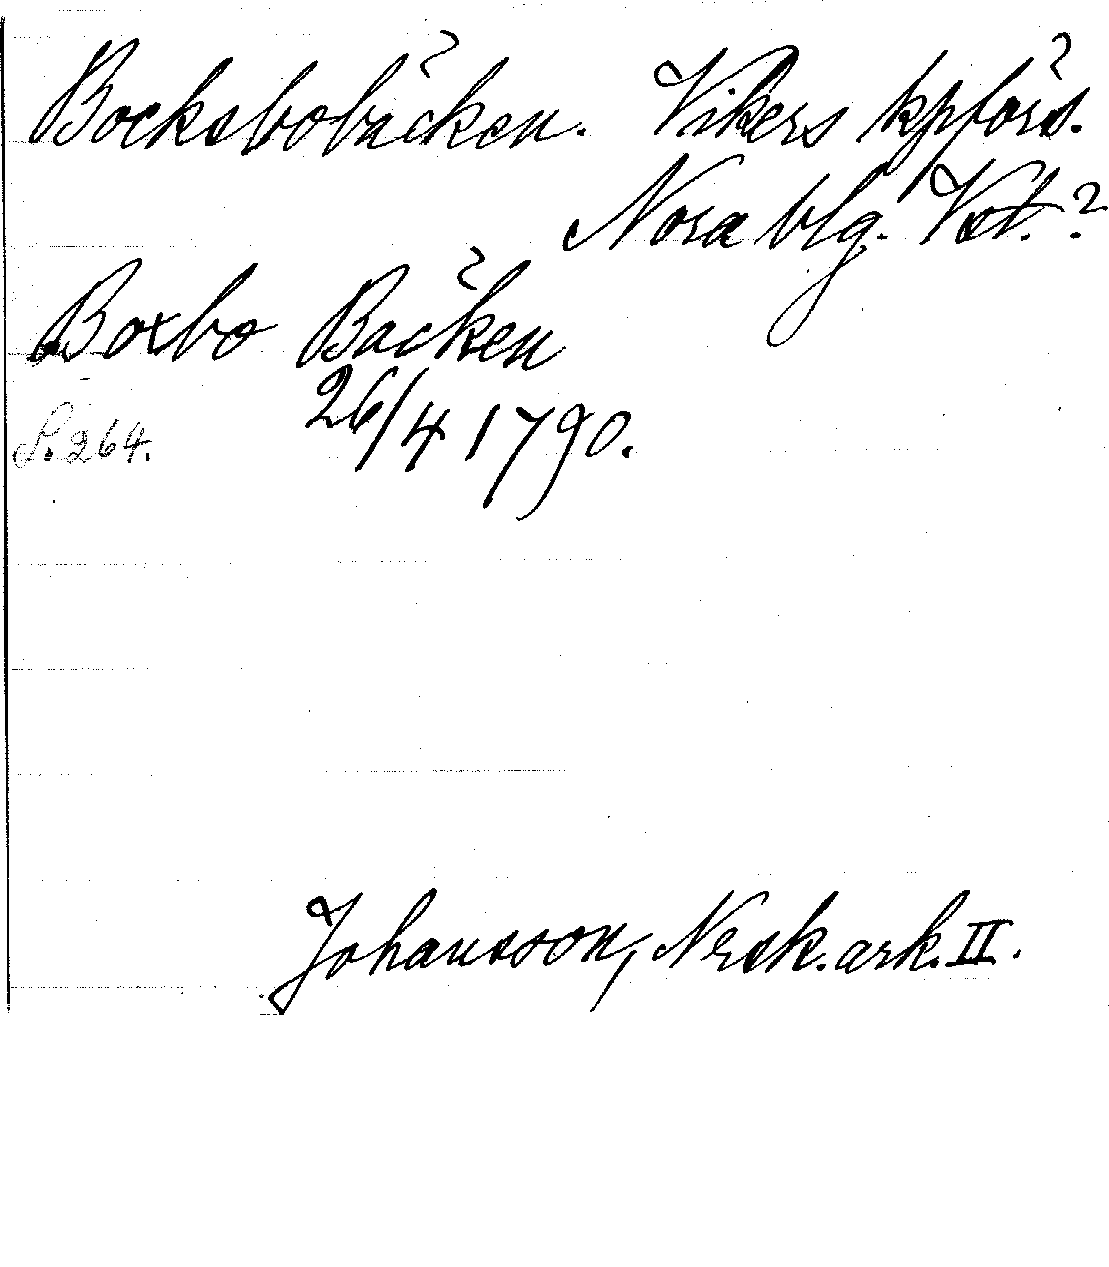 Bocksbobäcken. Vikers kpförs.
Nora blg. Vstm.?
Boxbo Bäcken
S. 264. 26/4 1790.
Johansson, Nrsk. ark. II.